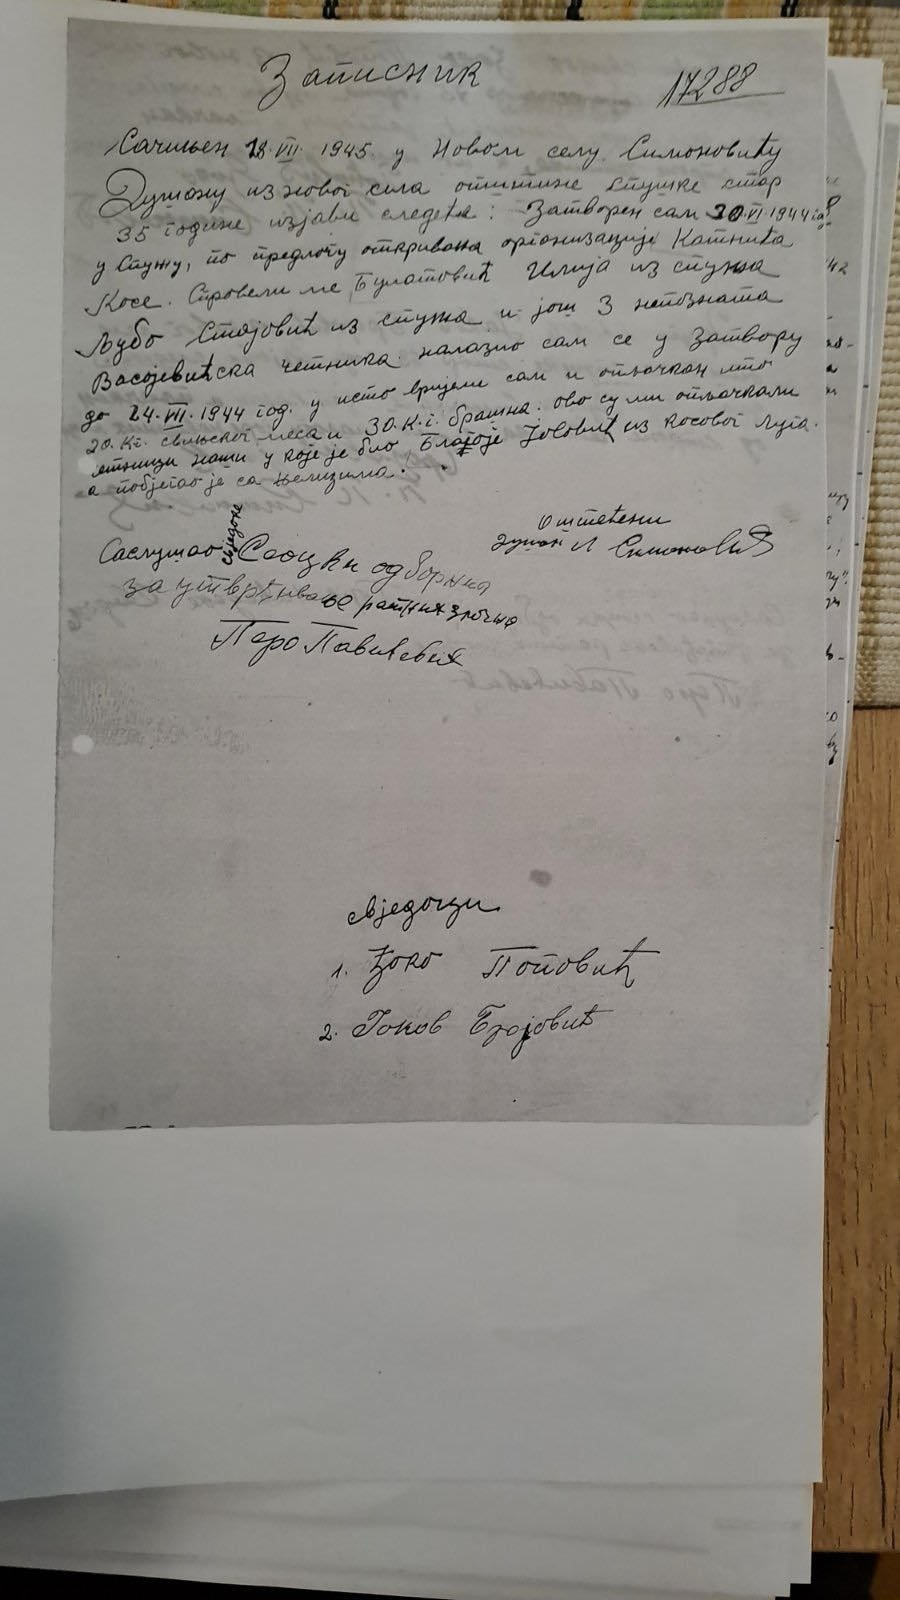 Записник
17288
Сачињен 18. VII. 1945 у Новом селу Симоновићу
Душану из новог села општине спушке стар
35 године изјави следећа: Затворен сам 20. VI. 1944 год
у Спужу, по предлогу откривања организације Катнића
Косе. Спровели ме, Булатовић Илија из спужа
Љубо Стајовић из спужа и још 3 непозната
Васојевићска четника. налазио сам се у Затвору
до 24. VII. 1944 год. у исто вријеме сам и опљачкан што
20. кг. свињског меса и 30. к.г. брашна. ово су ми опљачкали
четници наши у које је био, Благоје Јововић из косовог луга.
а побјегао је са њемцима.
Оштећени
Душан Л Симоновић
Саслушао сведоке Сеоцки одборник
за утврђивање ратних злочина
Перо Павићевић
свједоци
1. Ђоко Поповић
2. Јаков Бројовић